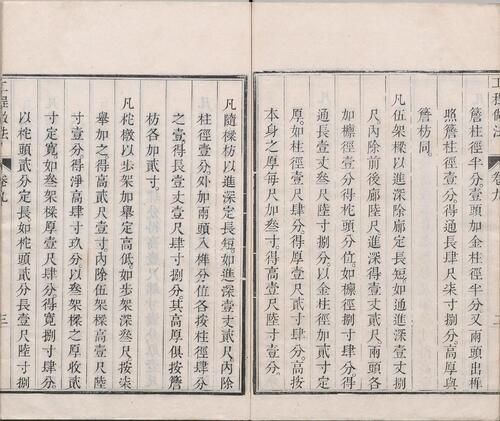 工程做法
卷九
二
簷柱徑半分。壹頭加金柱徑半分。又兩頭出榫
照簷柱徑壹分。得通長肆尺柒寸捌分。高厚與
簷枋同。
凡伍架樑以進深除廊定長短。如通進深壹丈捌
尺。內除前後廊陸尺。進深得壹丈貳尺。兩頭各
加檁徑壹分。得柁頭分位。如檁徑捌寸肆分。得
通長壹丈叁尺陸寸捌分。以金柱徑加貳寸定
厚。如柱徑壹尺肆分。得厚壹尺貳寸肆分。高按
本身之厚每尺加叁寸。得高壹尺陸寸壹分。
凡隨樑枋以進深定長短。如進深壹丈貳尺。內除
柱徑壹分。外加兩頭入榫分位。各按柱徑肆分
之壹。得長壹丈壹尺肆寸捌分。其高厚俱按簷
枋各加貳寸。
凡柁橔以步架加舉定高低。如步架深叁尺。按柒
舉加之。得高貳尺壹寸。內除伍架樑高壹尺陸
寸壹分。得淨高肆寸玖分。以叁架樑之厚收貳
寸定寬。如叁架樑厚壹尺肆分。得寬捌寸肆分。
以柁頭貳分定長。如柁頭貳分長壹尺陸寸捌
工程做法
卷九
三